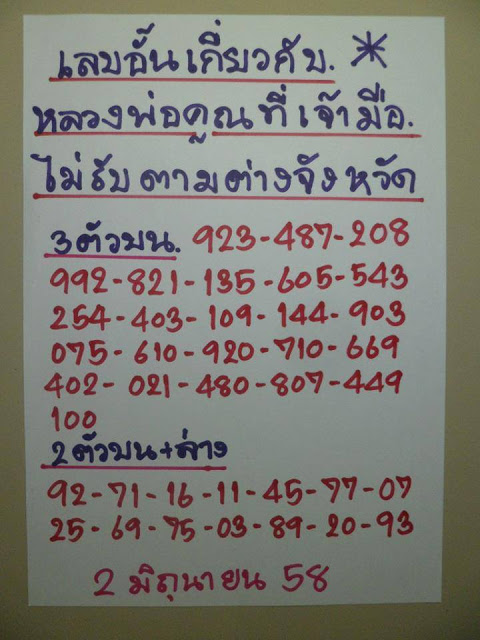 เลขอั้นเกี่ยวกับ. *
หลวงพ่อคูณที่เจ้ามือ.
ไม่รับตามต่างจังหวัด
3ตัวบน. 923-487-208
992-821-135-605-543
254-403-109-144-903
075-610-920-710-669
402-021-480-807-449
100
2ตัวบน+ล่าง
92-71-16-11-45-77-07
25-69-75-03-89-20-93
2 มิถุนายน 58